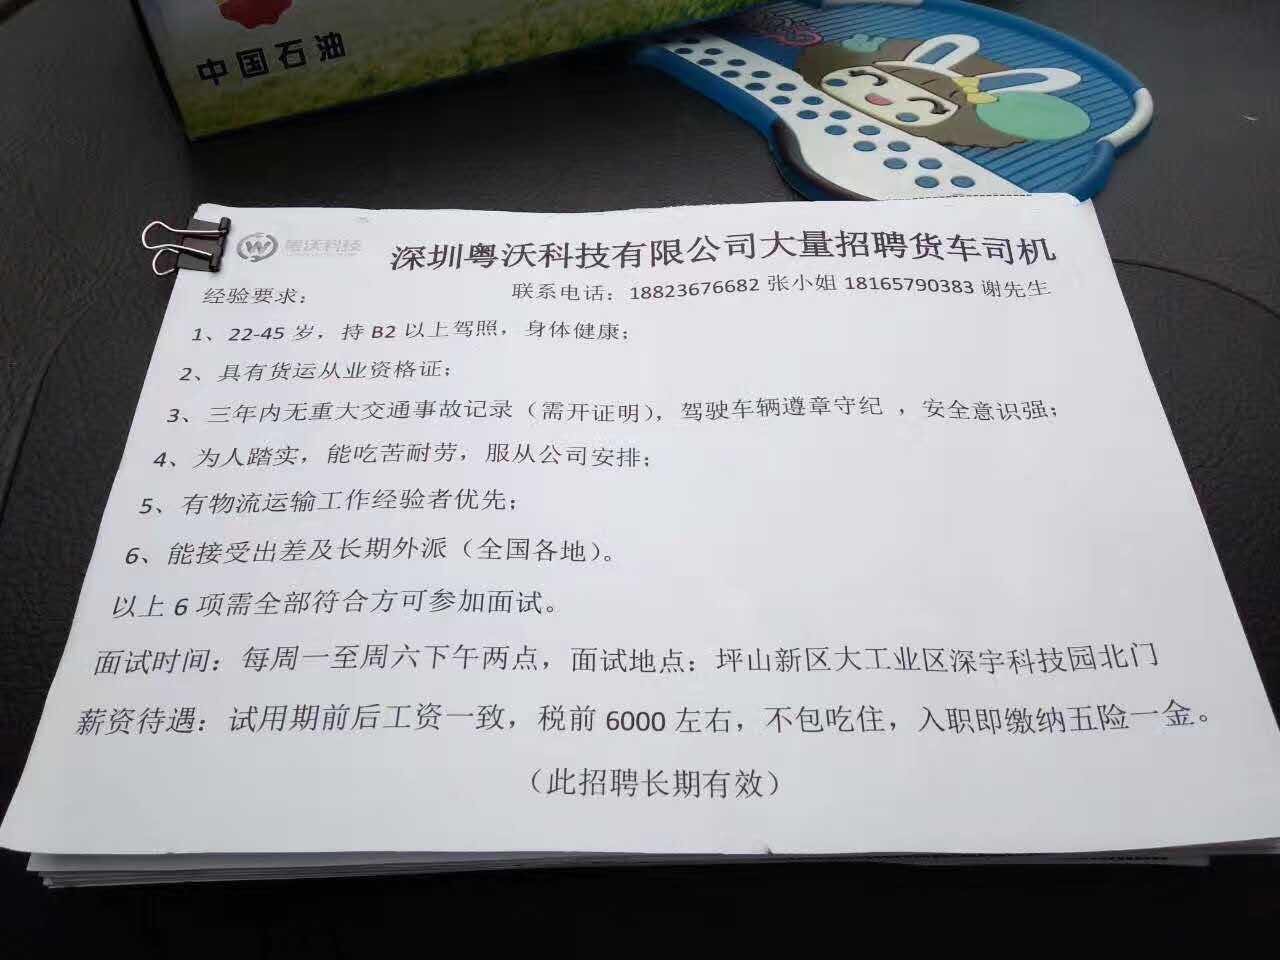 中国石油
粤沃科技
深圳粤沃科技有限公司大量招聘货车司机
经验要求：
联系电话：18823676682 张小姐 18165790383 谢先生
1、22-45 岁，持 B2 以上驾照，身体健康；
2、具有货运从业资格证；
3、三年内无重大交通事故记录（需开证明），驾驶车辆遵章守纪 ，安全意识强；
4、为人踏实，能吃苦耐劳，服从公司安排；
5、有物流运输工作经验者优先；
6、能接受出差及长期外派（全国各地）。
以上 6 项需全部符合方可参加面试。
面试时间：每周一至周六下午两点，面试地点：坪山新区大工业区深宇科技园北门
薪资待遇：试用期前后工资一致，税前 6000 左右，不包吃住，入职即缴纳五险一金。
（此招聘长期有效）